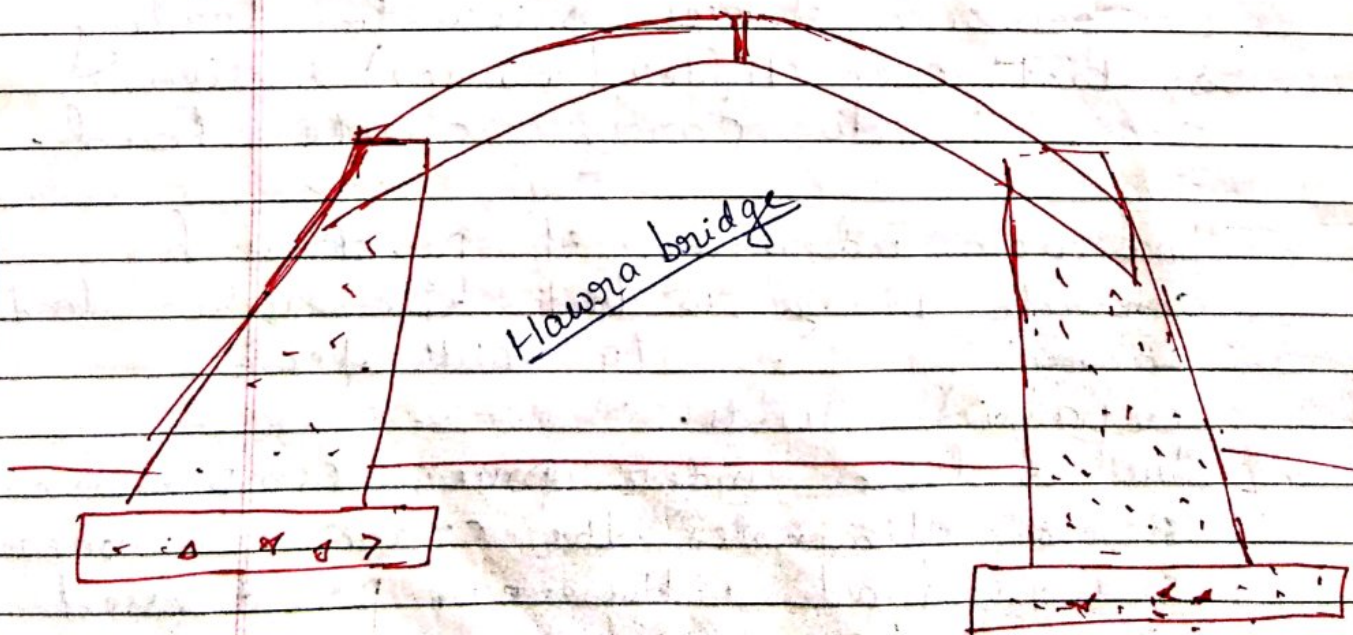 Hawra bridge